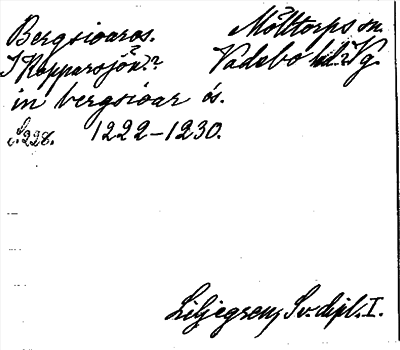 Bergsioaros. Mölltorps sn.
I Kopparsjön?? Vadsbo hd.? Vg.
in bergsioar ós.
S. 228. 1222-1230.
Liljegren, Sv. dipl. I.